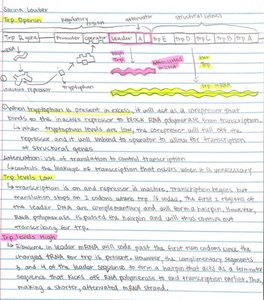 Sarina Lowber
Trp Operon
Regulatory region
attenuator
structural genes
Trp R gene
Promoter
operator
Leader
A
Trp E
Trp D
Trp C
Trp B
Trp A
mRNA
High Trp
Attenuated mRNA
Low Trp
inactive repressor
tryptophan
Trp mRNA
When tryptophan is present in excess, it will act as a corepressor that
binds to the inactive repressor to block RNA polymerase from transcription.
↳ when tryptophan levels are low, the corepressor will fall off the
repressor and it will unbind to operator to allow for transcription
of structural genes
Attenuation: use of translation to control transcription
↳ controls the leakage of transcription that occurs when it is unnecessary
Trp levels Low:
↳ transcription is on and repressor is inactive. Transcription begins but
translation stops on 2 codons where trp is coded. The first 2 regions of
the leader DNA are complementary and will form a hairpin. However,
RNA polymerase is past the hairpin and will thus continue
transcribing for trp.
Trp levels High:
↳ Ribosome in leader mRNA will code past the first two codons since the
charged tRNA for trp is present. However, the complementary segments
3 and 4 of the leader sequence to form a hairpin that acts as a terminator
sequence that kicks off RNA polymerase to end transcription further. Thus,
making a shorter, attenuated mRNA strand.